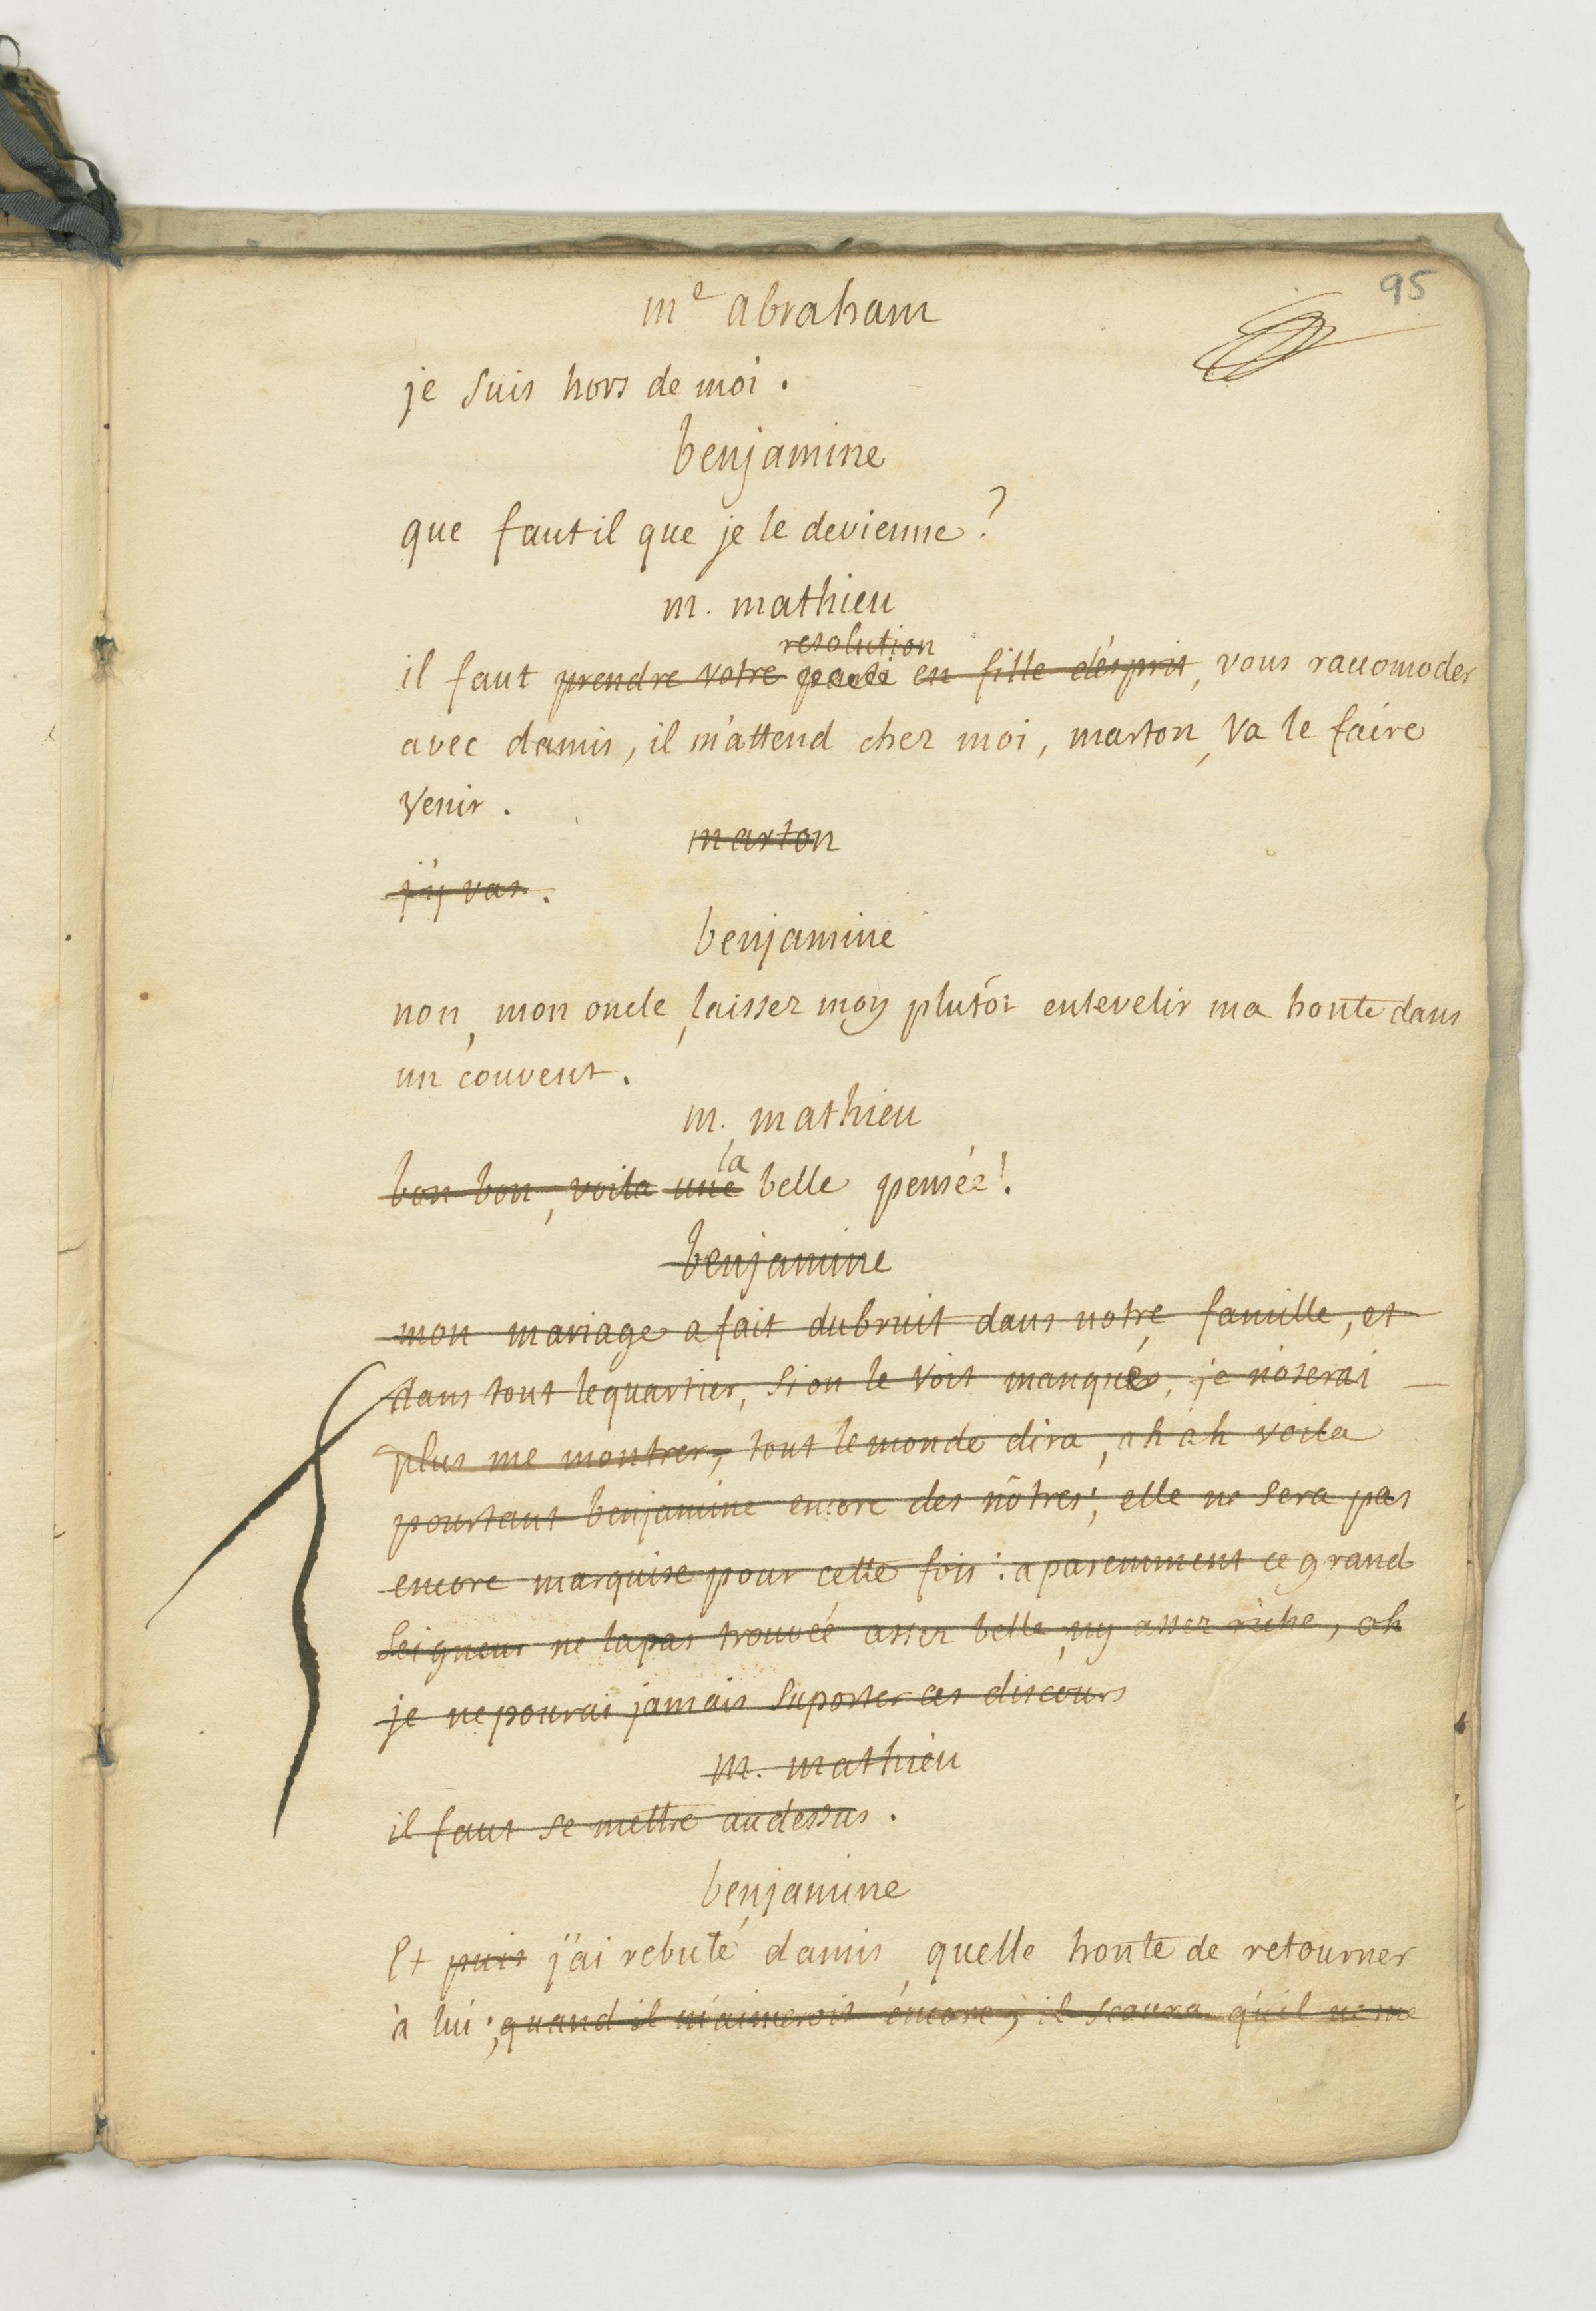 95
me abraham
je suis hors de moi .
benjamine
que fautil que je le devienne ?
m. mathieu
resolution
il faut prendre votre parti en fille d'esprit, vous racomoder
avec damis, il m'attend chez moi, marton, va le faire
venir .
marton
j'y vas .
benjamine
non, mon oncle, laissez moy plutôt ensevelir ma honte dans
un couvent .
m. mathieu
la
bon bon, voila une belle pensée !
benjamine
mon mariage a fait dubruit dans notre famille, et
dans tout lequartier, si on le voit manqué, je n'oserai
plus me montrer, tout le monde dira, ah ah voila
pourtant benjamine encore des nôtres, elle ne sera pas
encore marquise pour cette fois : aparemment ce grand
seigneur ne lapas trouvéé assez belle, ny assez riche, oh
je ne pourai jamais suporter ces discours
m. mathieu
il faut se mettre audessus .
benjamine
Et puis j'ai rebuté damis, quelle honte de retourner
à lui ; quand il m'aimeroit encore, il scaura qu'il ne me